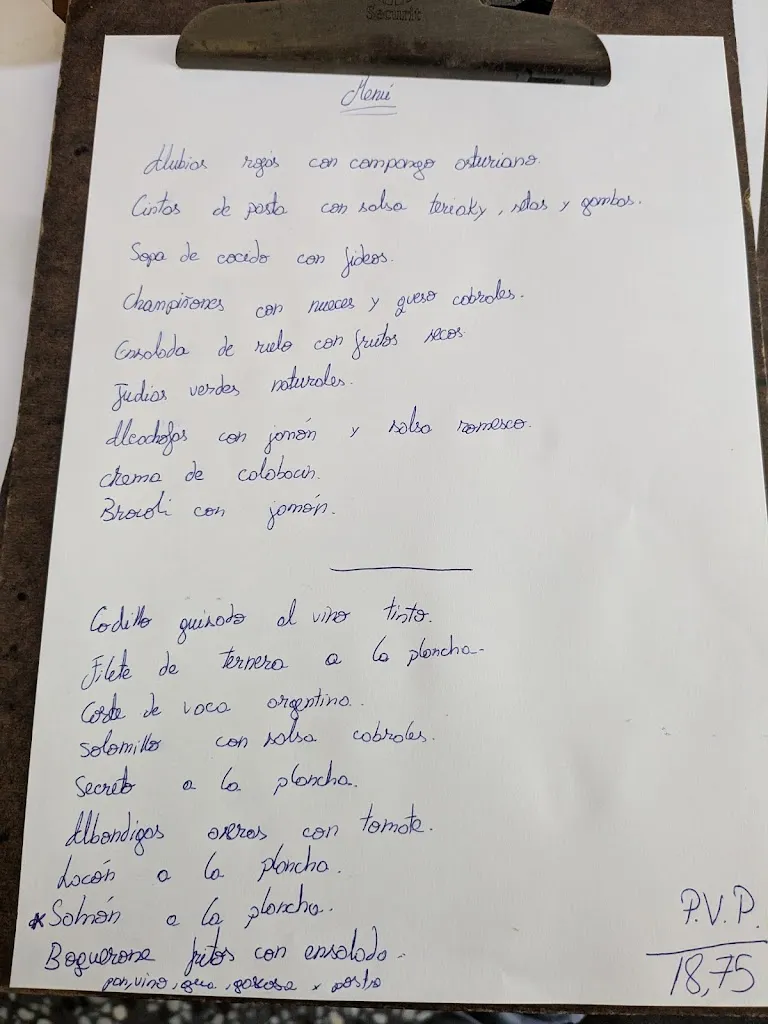 Securit
Menú
Alubias rojas con compango asturiano.
Cintas de pasta con salsa teriaky, setas y gambas.
Sopa de cocido con fideos.
Champiñones con nueces y queso cabrales.
Ensalada de rulo con frutos secos.
Judias verdes naturales.
Alcachofas con jamón y salsa romesco.
Crema de calabacin.
Brocoli con jamón.
Codillo guisado al vino tinto.
Filete de ternera a la plancha.
Corte de vaca argentina.
Solomillo con salsa cabrales.
Secreto a la plancha.
Albondigas caseras con tomate.
Lacón a la plancha.
*Salmón a la plancha.
Boquerone fritos con ensalada.
pan, vino, agua, gaseosa y postre
P.V.P.
18,75